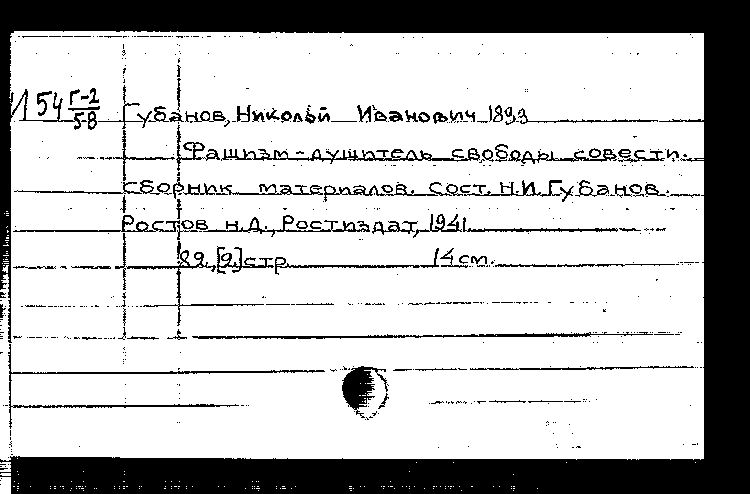 И 54 Г-2/58 Губанов, Николай Иванович 1893
Фашизм - душитель свободы совести.
сборник материалов. Сост. Н.И. Губанов.
Ростов н.Д., Ростиздат, 1941.
89., [2.] стр. 14 см.